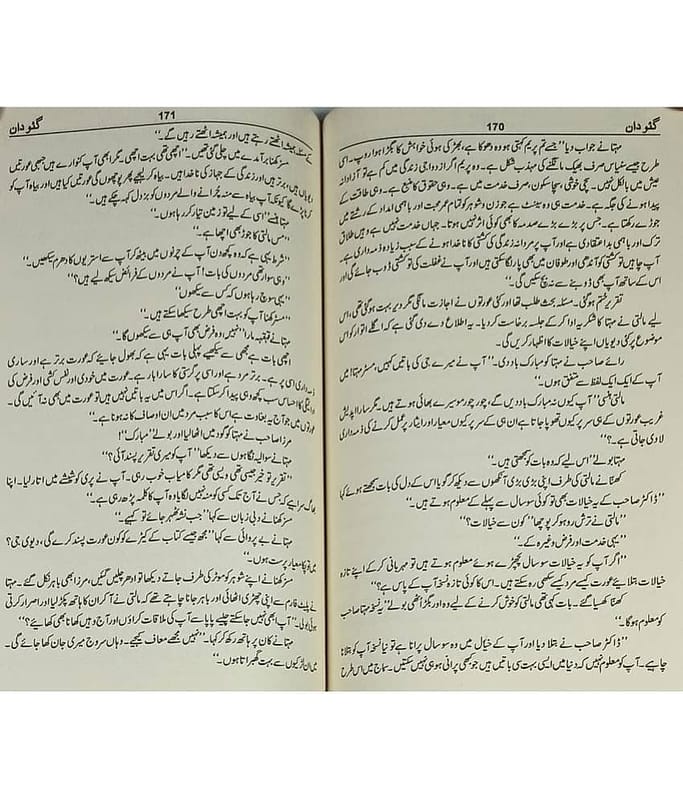 گئودان
170
مہتا نے جواب دیا ”جسے تم پریم کہتی ہو وہ دھوکا ہے، بھڑکی ہوئی خواہش کا بگڑا ہوا روپ۔ اسی
طرح جیسے سنیاس صرف بھیک مانگنے کی مہذب شکل ہے۔ وہ پریم اگر ازدواجی زندگی میں کم ہے تو آزادانہ
عیش میں بالکل نہیں۔ سچی خوشی، سچا سکون، صرف خدمت میں ہے۔ وہی حقوق کا منبع ہے۔ وہی طاقت کے
پیدا ہونے کی جگہ ہے۔ خدمت ہی وہ سیمنٹ ہے جو زن و شوہر کو تمام عمر محبت اور باہمی امداد کے رشتے میں
جوڑے رکھتا ہے۔ جس پر بڑے بڑے صدمہ کا بھی کوئی اثر نہیں ہوتا۔ جہاں خدمت نہیں ہے وہیں طلاق
ترک اور باہمی بداعتقادی ہے اور آپ پر مردانہ زندگی کی کشتی کا ناخدا ہونے کے سبب زیادہ ذمہ داری ہے۔
آپ چاہیں تو کشتی کو آندھی اور طوفان میں بھی پار لگا سکتی ہیں اور آپ نے غفلت کی تو کشتی ڈوب جائے گی اور
اس کے ساتھ آپ بھی ڈوبنے سے نہ بچ سکیں گی۔“
تقریر ختم ہو گئی۔ مسئلہ بحث طلب تھا اور کئی عورتوں نے اجازت مانگی مگر دیر بہت ہو گئی تھی، اس
لیے مالتی نے مہتا کا شکریہ ادا کر کے جلسہ برخاست کر دیا۔ یہ اطلاع دے دی گئی ہے کہ اگلے اتوار کو اس
موضوع پر کئی دیویاں اپنے خیالات کا اظہار کریں گی۔
رائے صاحب نے مہتا کو مبارک باد دی۔ ”آپ نے میرے جی کی باتیں کہیں، مسٹر مہتا! میں
آپ کے ایک ایک لفظ سے متفق ہوں۔“
مالتی ہنسی ”آپ کیوں نہ مبارک باد دیں گے، چور چور موسیرے بھائی ہوتے ہیں۔ مگر سارا اپدیش
غریب عورتوں کے ہی سر کیوں تھوپا جاتا ہے ان ہی کے سر پر کیوں معیار اور ایثار پر عمل کرنے کی ذمہ داری
لادی جاتی ہے۔؟“
مہتا بولے ”اس لیے کہ وہ بات کو سمجھتی ہیں۔“
کھنا نے مالتی کی طرف اپنی بڑی بڑی آنکھوں سے دیکھ کر گویا اس کے دل کی بات سمجھتے ہوئے کہا
”ڈاکٹر صاحب کے یہ خیالات بھی تو کوئی سو سال سے پہلے کے معلوم ہوتے ہیں۔“
مالتی نے ترش رو ہو کر پوچھا ”کون سے خیالات؟“
”یہی خدمت اور فرض وغیرہ کے۔“
”اگر آپ کو یہ خیالات سو سال پچھڑے ہوئے معلوم ہوتے ہیں تو مہربانی کر کے اپنے تازہ
خیالات بتلائیے عورت کیسے مرد سے سکھی رہ سکتے ہیں۔ اس کا کوئی تازہ نسخہ آپ کے پاس ہے؟“
کھنا کھسیا گئے۔ بات کہی تھی مالتی کو خوش کرنے کے لیے وہ اور بگڑ اٹھی بولے ”یہ نسخہ مہتا صاحب
کو معلوم ہوگا۔“
”ڈاکٹر صاحب نے بتلا دیا اور آپ کے خیال میں وہ سو سال پرانا ہے تو نیا نسخہ آپ کو بتلانا
چاہیے۔ آپ کو معلوم نہیں کہ دنیا میں ایسی بہت سی باتیں ہیں جو کبھی پرانی ہو ہی نہیں سکتیں۔ سماج میں اس طرح
171
گئودان
کے مسئلے ہمیشہ اٹھتے رہتے ہیں اور ہمیشہ اٹھتے رہیں گے۔“
مسز کھنا برآمدے میں چلی گئی تھیں۔ ”اچھی تھی بہت اچھی۔ مگر ابھی آپ کنوارے ہیں جبھی عورتیں
دیویاں ہیں، برتر ہیں اور زندگی کے جہاز کی ناخدا ہیں۔ بیاہ کر لیجیے پھر پوچھوں گی عورتیں کیا ہیں اور بیاہ آپ کو
کرنا پڑے گا کیونکہ آپ بیاہ سے منہ چرانے والے مردوں کو بزدل کہہ چکے ہیں۔“
مہتا ہنسے ”اسی کے لیے تو زمین تیار کر رہا ہوں۔“
”مس مالتی کا جوڑ بھی اچھا ہے۔“
”شرط یہی ہے کہ وہ کچھ دن آپ کے چرنوں میں بیٹھ کر آپ سے استریوں کا دھرم سیکھیں۔“
”وہی سوارتھی مردوں کی بات! آپ نے مردوں کے فرائض سیکھ لیے ہیں؟“
”یہی سوچ رہا ہوں کہ کس سے سیکھوں“
”مسٹر کھنا آپ کو بہت اچھی طرح سکھا سکتے ہیں۔“
مہتا نے قہقہہ مارا ”نہیں! وہ فرض بھی آپ ہی سے سیکھوں گا۔“
اچھی بات ہے مجھی سے سیکھیے پہلی بات یہی ہے کہ بھول جائیے کہ عورت برتر ہے اور ساری
ذمہ داری اسی پر ہے۔ برتر مرد ہے اور اسی پر گرہستی کا سارا بار ہے۔ عورت میں خودی اور نفس کشی اور فرض کی
کا احساس سب کچھ وہی پیدا کر سکتا ہے۔ اگر اس میں یہ باتیں نہیں ہیں تو عورت میں بھی نہ آئیں گی۔
عورتوں میں جو آج یہ بغاوت ہے اس کا سبب مرد میں ان اوصاف کا نہ ہونا ہے۔“
مرزا صاحب نے مہتا کو گود میں اٹھا لیا اور بولے ”مبارک“!
مہتا نے سوالیہ نگاہوں سے دیکھا ”آپ کو میری تقریر پسند آئی؟“
”تقریر تو خیر جیسی تھی ویسی تھی مگر کامیاب خوب رہی۔ آپ نے پری کو شیشے میں اتار لیا۔ اپنا
بھاگ سراہیے کہ جس نے آج تک کسی کو منہ نہیں لگایا وہ آپ کا کلمہ پڑھ رہی ہے۔“
مسز کھنا نے دبی زبان سے کہا ”جب نشہ ٹھہر جائے تو کہیے۔“
مہتا نے بے پروائی سے کہا ”مجھ جیسے کتاب کے کیڑے کو کون عورت پسند کرے گی، دیوی جی؟
میں تو پکا معیار پرست ہوں۔“
مسز کھنا نے اپنے شوہر کو موٹر کی طرف جاتے دیکھا تو ادھر چلیں گئیں، مرزا بھی باہر نکل گئے۔ مہتا
نے پلیٹ فارم سے اپنی چھڑی اٹھائی اور باہر جانا چاہتے تھے کہ مالتی نے آ کر ان کا ہاتھ پکڑ لیا اور اصرار کرتی
ہوئی بولی۔ ”آپ ابھی نہیں جا سکتے چلیے پاپا سے آپ کی ملاقات کراؤں اور آج وہیں کھانا بھی کھایئے؟“
مہتا نے کان پر ہاتھ رکھ کر کہا۔ ”نہیں مجھے معاف کیجیے۔ وہاں سروج میری جان کھا جائے گی۔
میں ان لڑکیوں سے بہت گھبراتا ہوں۔“